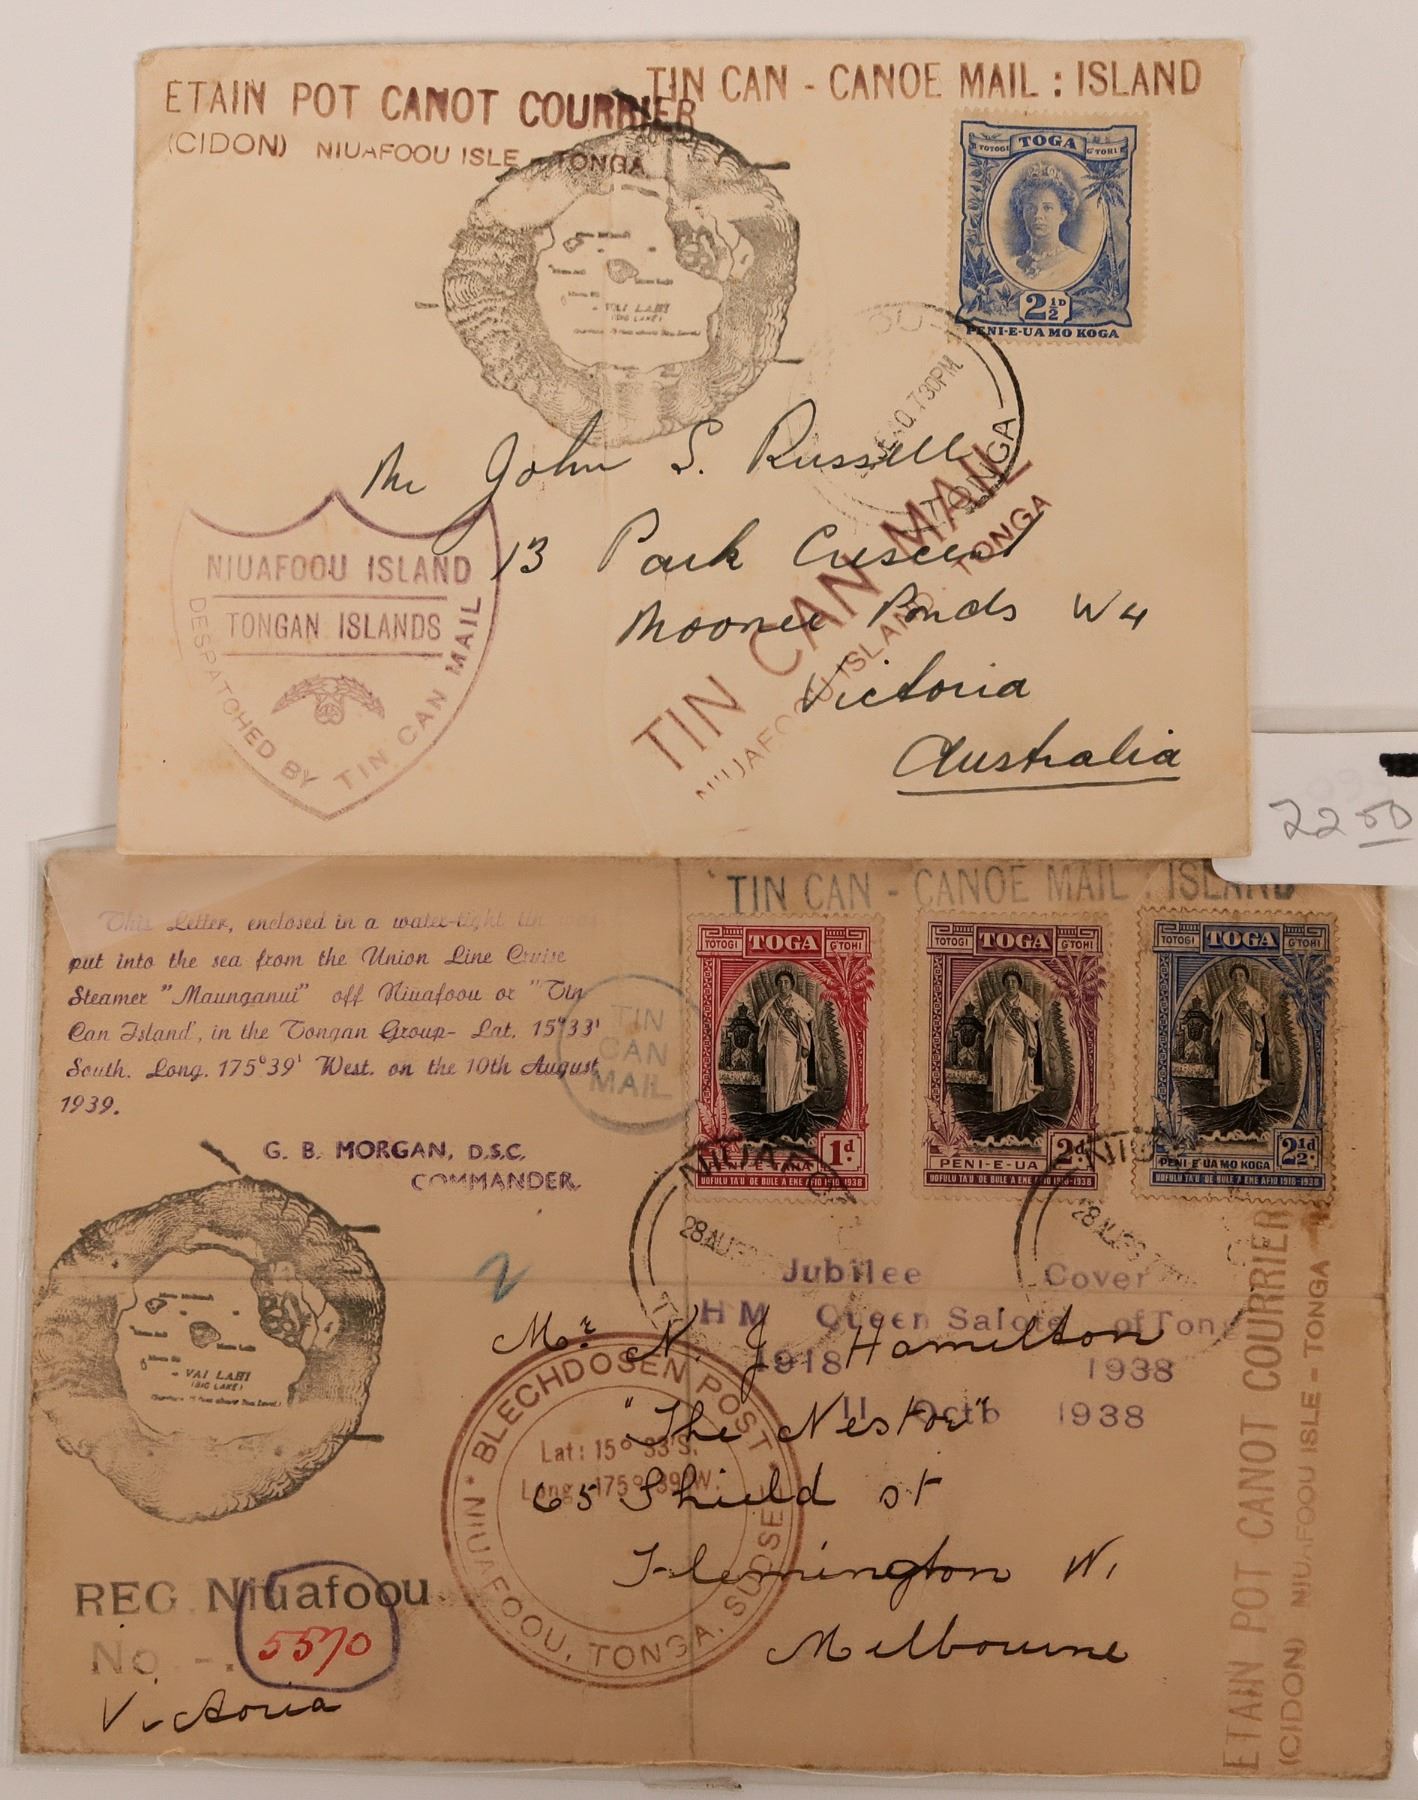 ETAIN POT CANOT COURRIER
(CIDON) NIUAFOOU ISLE - TONGA
TIN CAN - CANOE MAIL : ISLAND
TOTOGI TOGA G'TOHI
2½D
PENI-E-UA MO KOGA
VAI LAHI
(BIG LAKE)
7.30PM
TONGA
Mr John S. Russell
13 Park Crescent
Moonee Ponds W4
Victoria
Australia
TIN CAN MAIL
NIUAFOOU ISLAND TONGA
NIUAFOOU ISLAND
TONGAN ISLANDS
DESPATCHED BY TIN CAN MAIL
2250
TIN CAN - CANOE MAIL : ISLAND
This Letter, enclosed in a water-tight tin
put into the sea from the Union Line Cruise
Steamer "Maunganui" off Niuafoou or "Tin
Can Island', in the Tongan Group- Lat. 15°33'
South. Long. 175°39' West. on the 10th August
1939.
G. B. MORGAN, D.S.C.
COMMANDER.
TIN
CAN
MAIL
TOTOGI TOGA G'TOHI
1d.
PENI-E-TAHA
HOFULU TA'U OE BULE A ENE AFIO 1918-1938
TOTOGI TOGA G'TOHI
2d.
PENI-E-UA
HOFULU TA'U OE BULE A ENE AFIO 1918-1938
TOTOGI TOGA G'TOHI
2½d.
PENI-E UA MO KOGA
HOFULU TA'U OE BULE A ENE AFIO 1918-1938
28 AUG
28 AUG
VAI LAHI
(BIG LAKE)
2
Jubilee Cover
H M Queen Salote of Ton
1918 1938
11 Octb 1938
Mr. N. J Hamilton
"The Nestor"
65 Shield st
Flemington W.
Melbourne
Victoria
BLECHDOSEN POST
Lat: 15° 33'S.
Long: 175° 39'W.
NIUAFOOU, TONGA, SUDSEE
REG Niuafoou
No -. 5570
ETAIN POT CANOT COURRIER
(CIDON) NIUAFOOU ISLE - TONGA